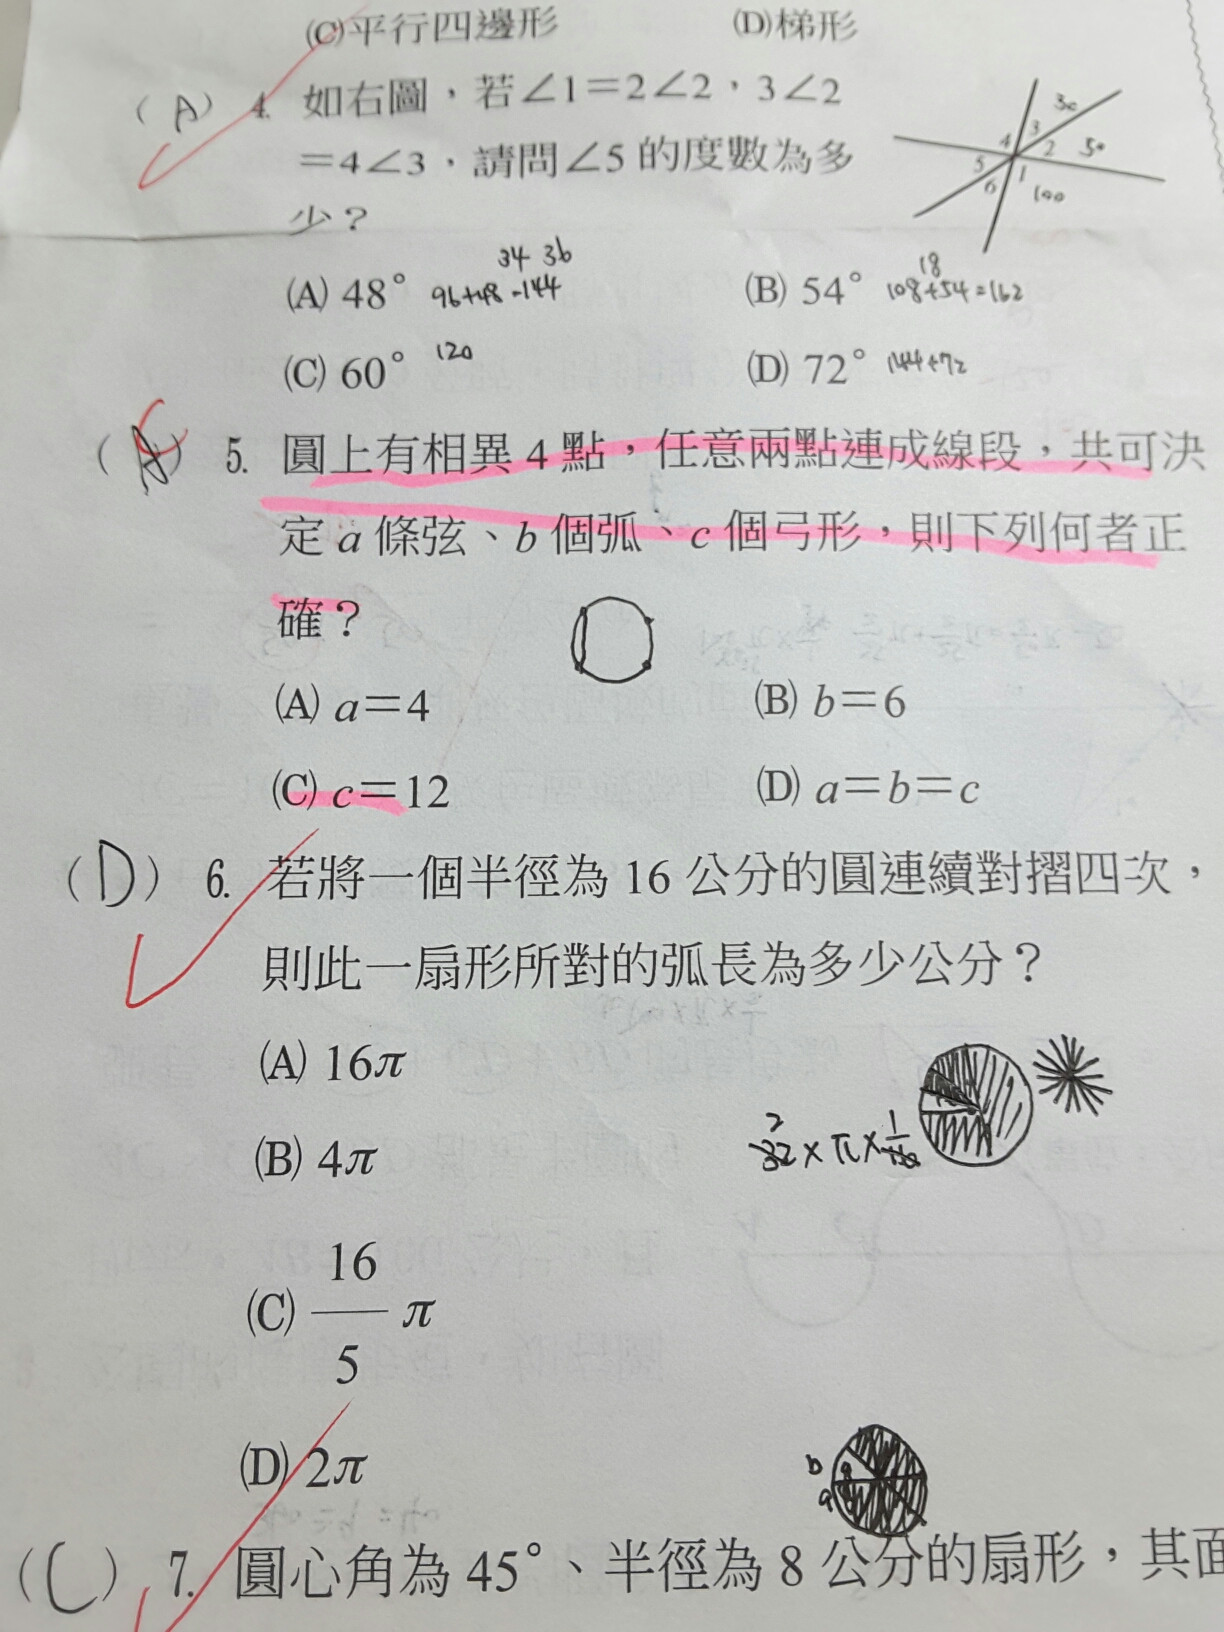 (C)平行四邊形 (D)梯形
(A) 4. 如右圖，若∠1＝2∠2，3∠2
＝4∠3，請問∠5的度數為多
少？
4 3 30
5 2 50
6 1 100
34 36
(A) 48° 96+48=144
18
(B) 54° 108+54=162
(C) 60° 120
(D) 72° 144+72
(C) 5. 圓上有相異4點，任意兩點連成線段，共可決
定a條弦、b個弧、c個弓形，則下列何者正
確？
(A) a＝4 (B) b＝6
(C) c＝12 (D) a＝b＝c
(D) 6. 若將一個半徑為16公分的圓連續對摺四次，
則此一扇形所對的弧長為多少公分？
(A) 16π
(B) 4π
2 1
32×π×16
(C) 16/5 π
(D) 2π
b
a
(C) 7. 圓心角為45°、半徑為8公分的扇形，其面